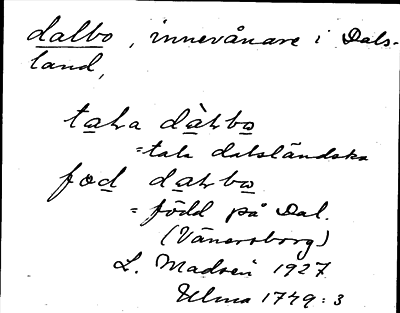 dalbo, innevånare i Dals-
land,
tala dàlbo
=tala dalsländska
fod dalbo
= född på Dal.
(Vänersborg)
L. Madsén 1927
Ulma 1749:3